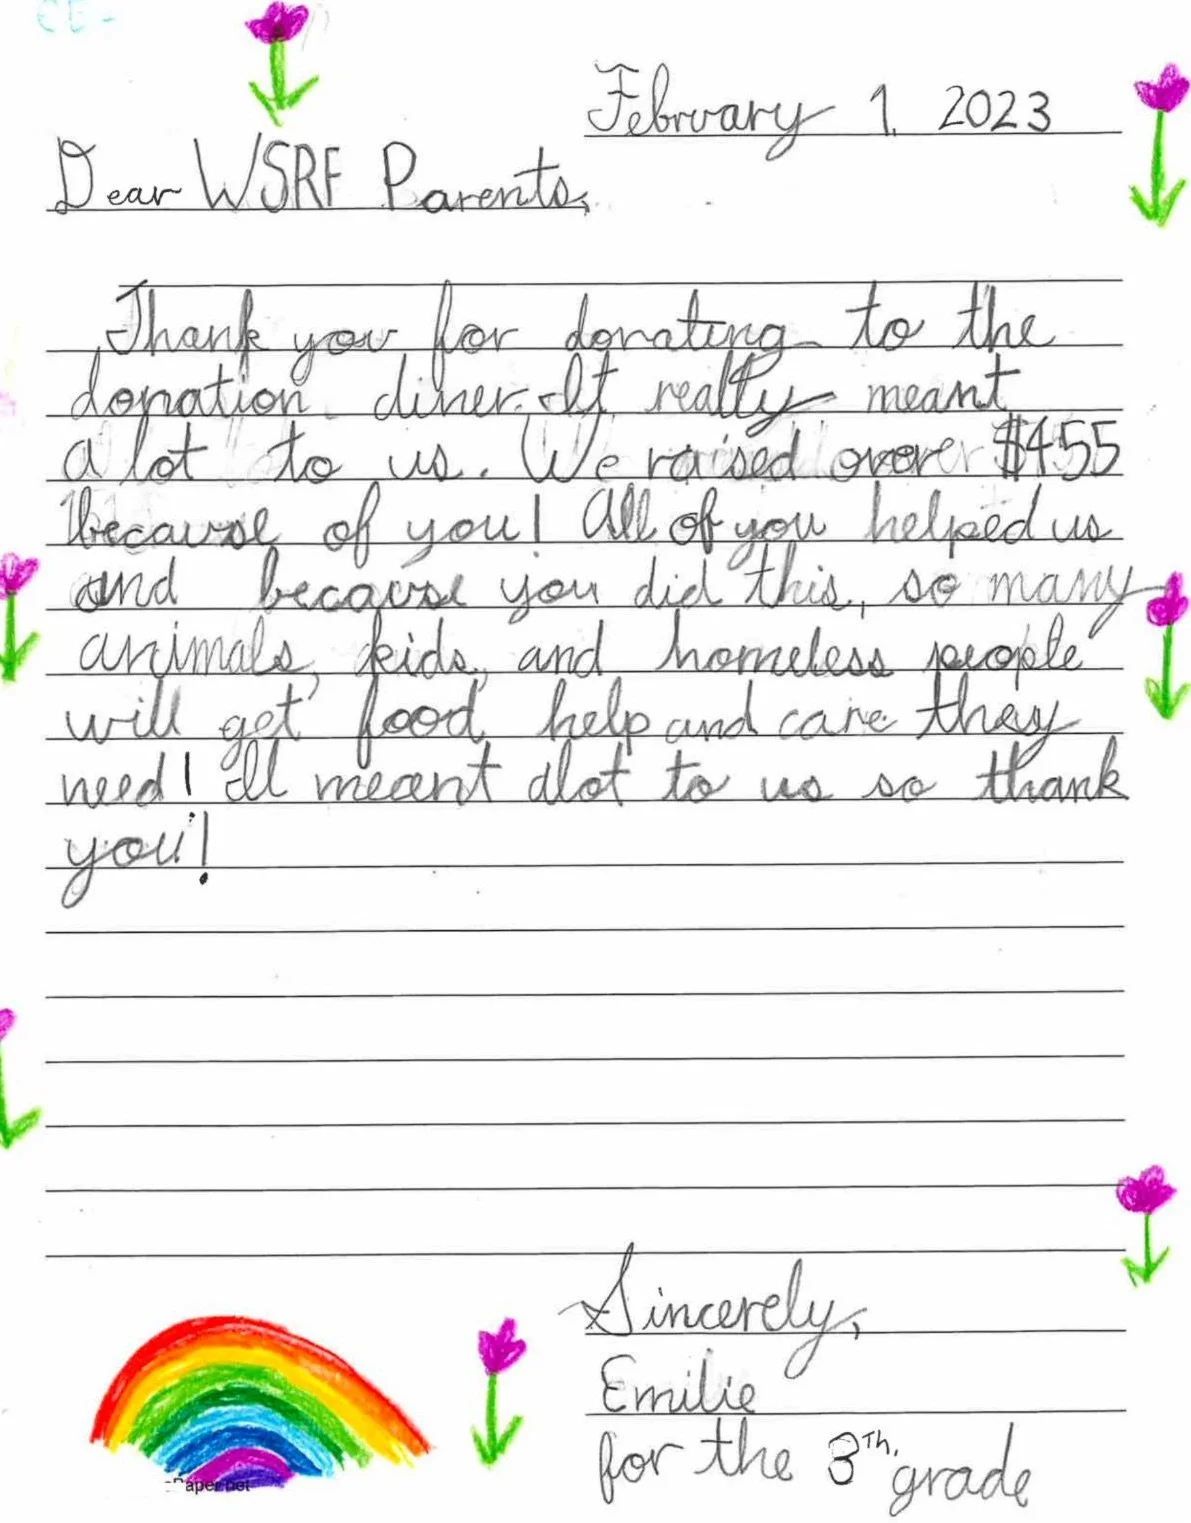 February 1, 2023
Dear WSRF Parents,
Thank you for donating to the
donation diner. It really meant
a lot to us. We raised over $455
because of you! All of you helped us
and because you did this, so many
animals, kids, and homeless people
will get food help and care they
need! It meant alot to us so thank
you!
Sincerely,
Emilie
for the 3Th. grade
Paper.net